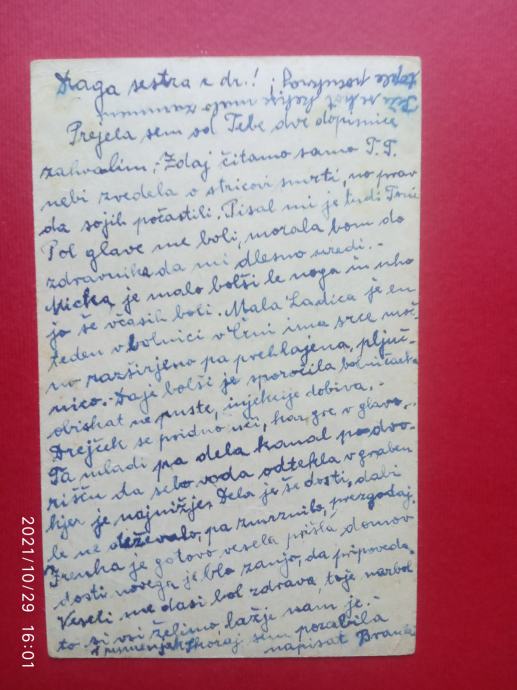 Draga sestra z dr.!
Prejela sem od Tebe dve dopisnice
zahvalim. Zdaj čitamo samo T.T.
nebi zvedela o stricovi smrti, no prav
da so jih počastili. Pisal mi je tudi Toni
Pol glave me boli, morala bom do
zdravnika da mi dlesno uredi. -
Micka je malo bolši le noga in uho
jo še včasih boli. Mala Ladica je en
teden v bolnici v Črni ima srce moč-
no razširjeno pa prehlajena, pljuč-
nico. Da je bolši je sporočila
obiskat ne puste, injekcije dobiva. -
Drejček se pridno uči, kar gre v glavo. -
Ta mladi pa dela kanal po dvo-
rišču da se bo voda odtekla v graben
kjer je najnižje. Dela je še dosti, da bi
le ne deževalo, pa zmrznilo, prezgodaj.
Irenka je gotovo vesela prišla domov
dosti novega je blo zanjo, da pripoveda.
Veseli me da si bol zdrava, to je narbol
to si vsi želimo lažje nam je. -
skoraj sem pozabila
napisat